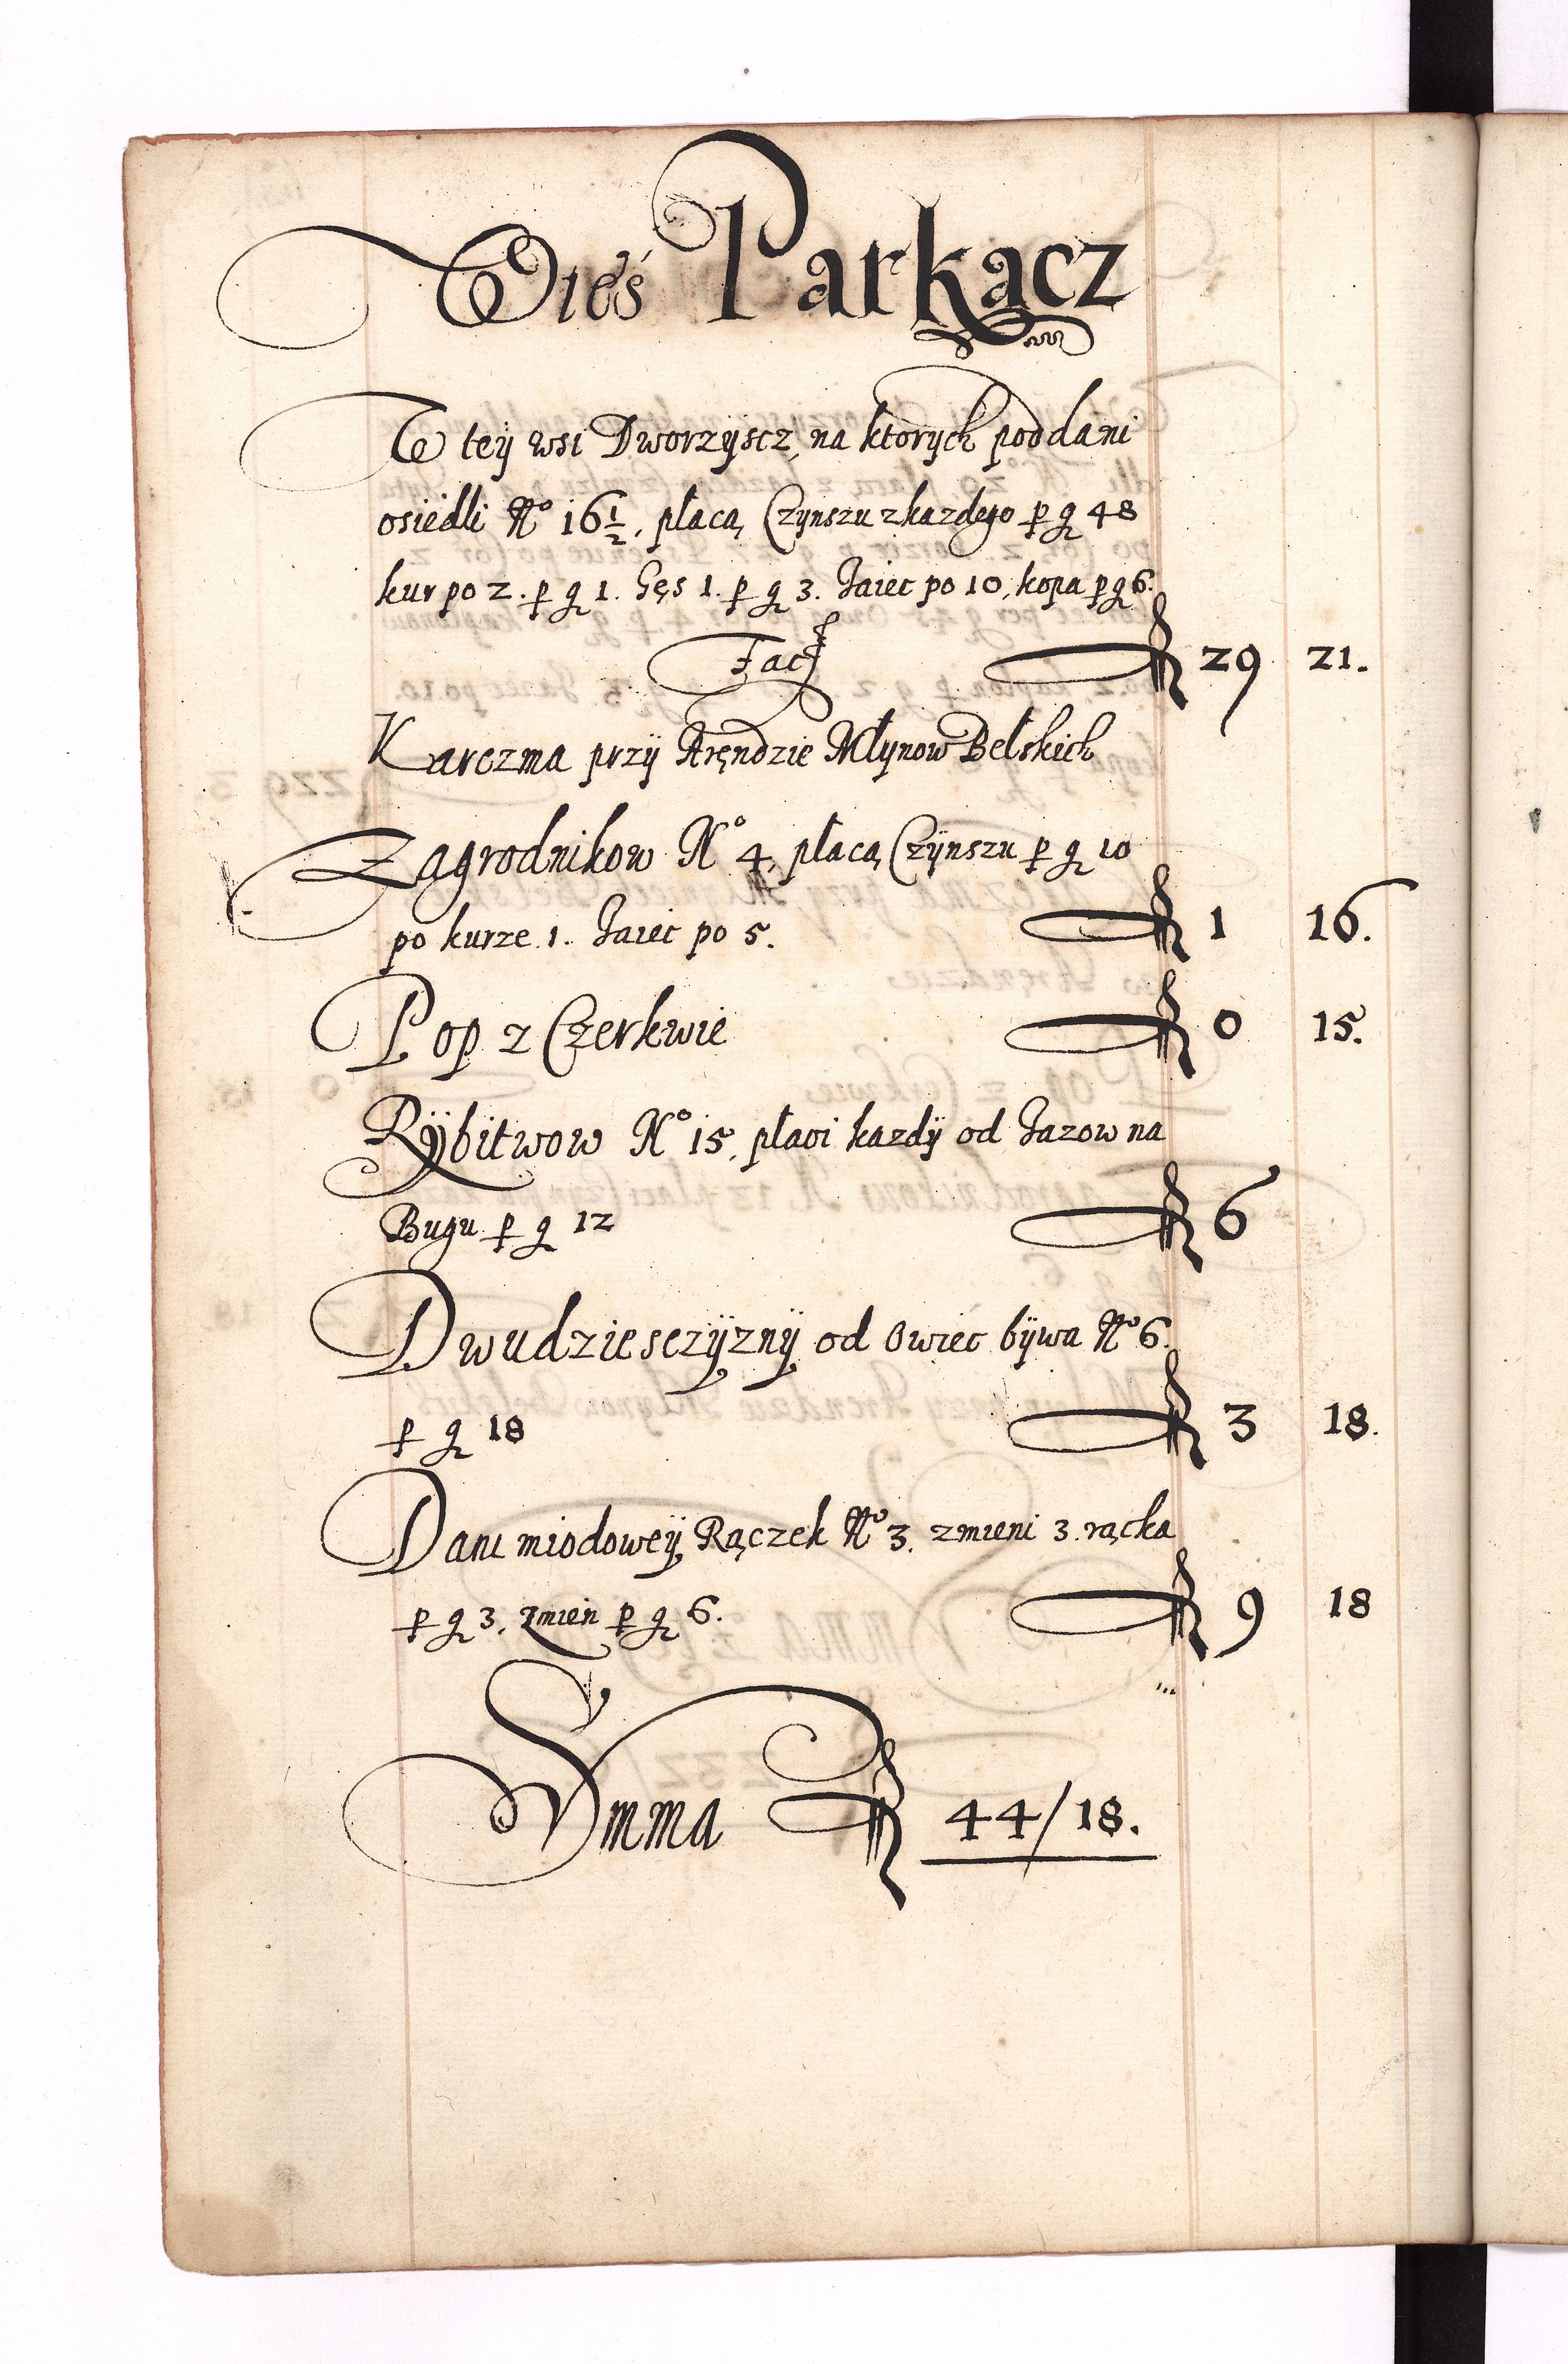 Wieś Parkacz
W teÿ wsi Dworzÿscz, na ktorÿch poddani
osiedli No 16 1/2, płacą Czÿnszu z kazdego p g 48
kur po 2. p g 1. Gęs 1. p g 3. Jaiec po 10, kopa p g 6.
Facit f 29 21.
Karczma przÿ Aręndzie Młynow Bełskich
Zagrodnikow No 4, płacą Czÿnszu p g 10
po kurze 1. Jaiec po 5. f 1 16.
Pop z Czerkwie f 0 15.
Rÿbitwow No 15, płaci kazdÿ od Jazow na
Bugu p g 12 f 6
Dwudziesczÿznÿ od Owiec bÿwa No 6.
p g 18 f 3 18.
Dani miodoweÿ Rączek No 3. zmieni 3. rącka
p g 3, zmien p g 6. f 9 18
Summa f 44/18.